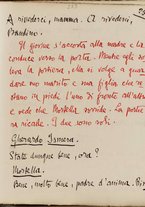 A rivederci, mamma. A rivederci,
Brandino.
Il giovine s'accosta alla madre e la
conduce verso la porta. Mentre egli sol-
leva la portiera, ella si volge a guar-
dare suo marito e sua figlia che re-
stano in piedi l'uno di fronte all'altra;
e vede che Mortella sorride. La porta
ricade. I due sono soli.
Gherardo Ismera.
Stàte dunque bene, ora?
Mortella.
Bene, molto bene, padre d'anima.